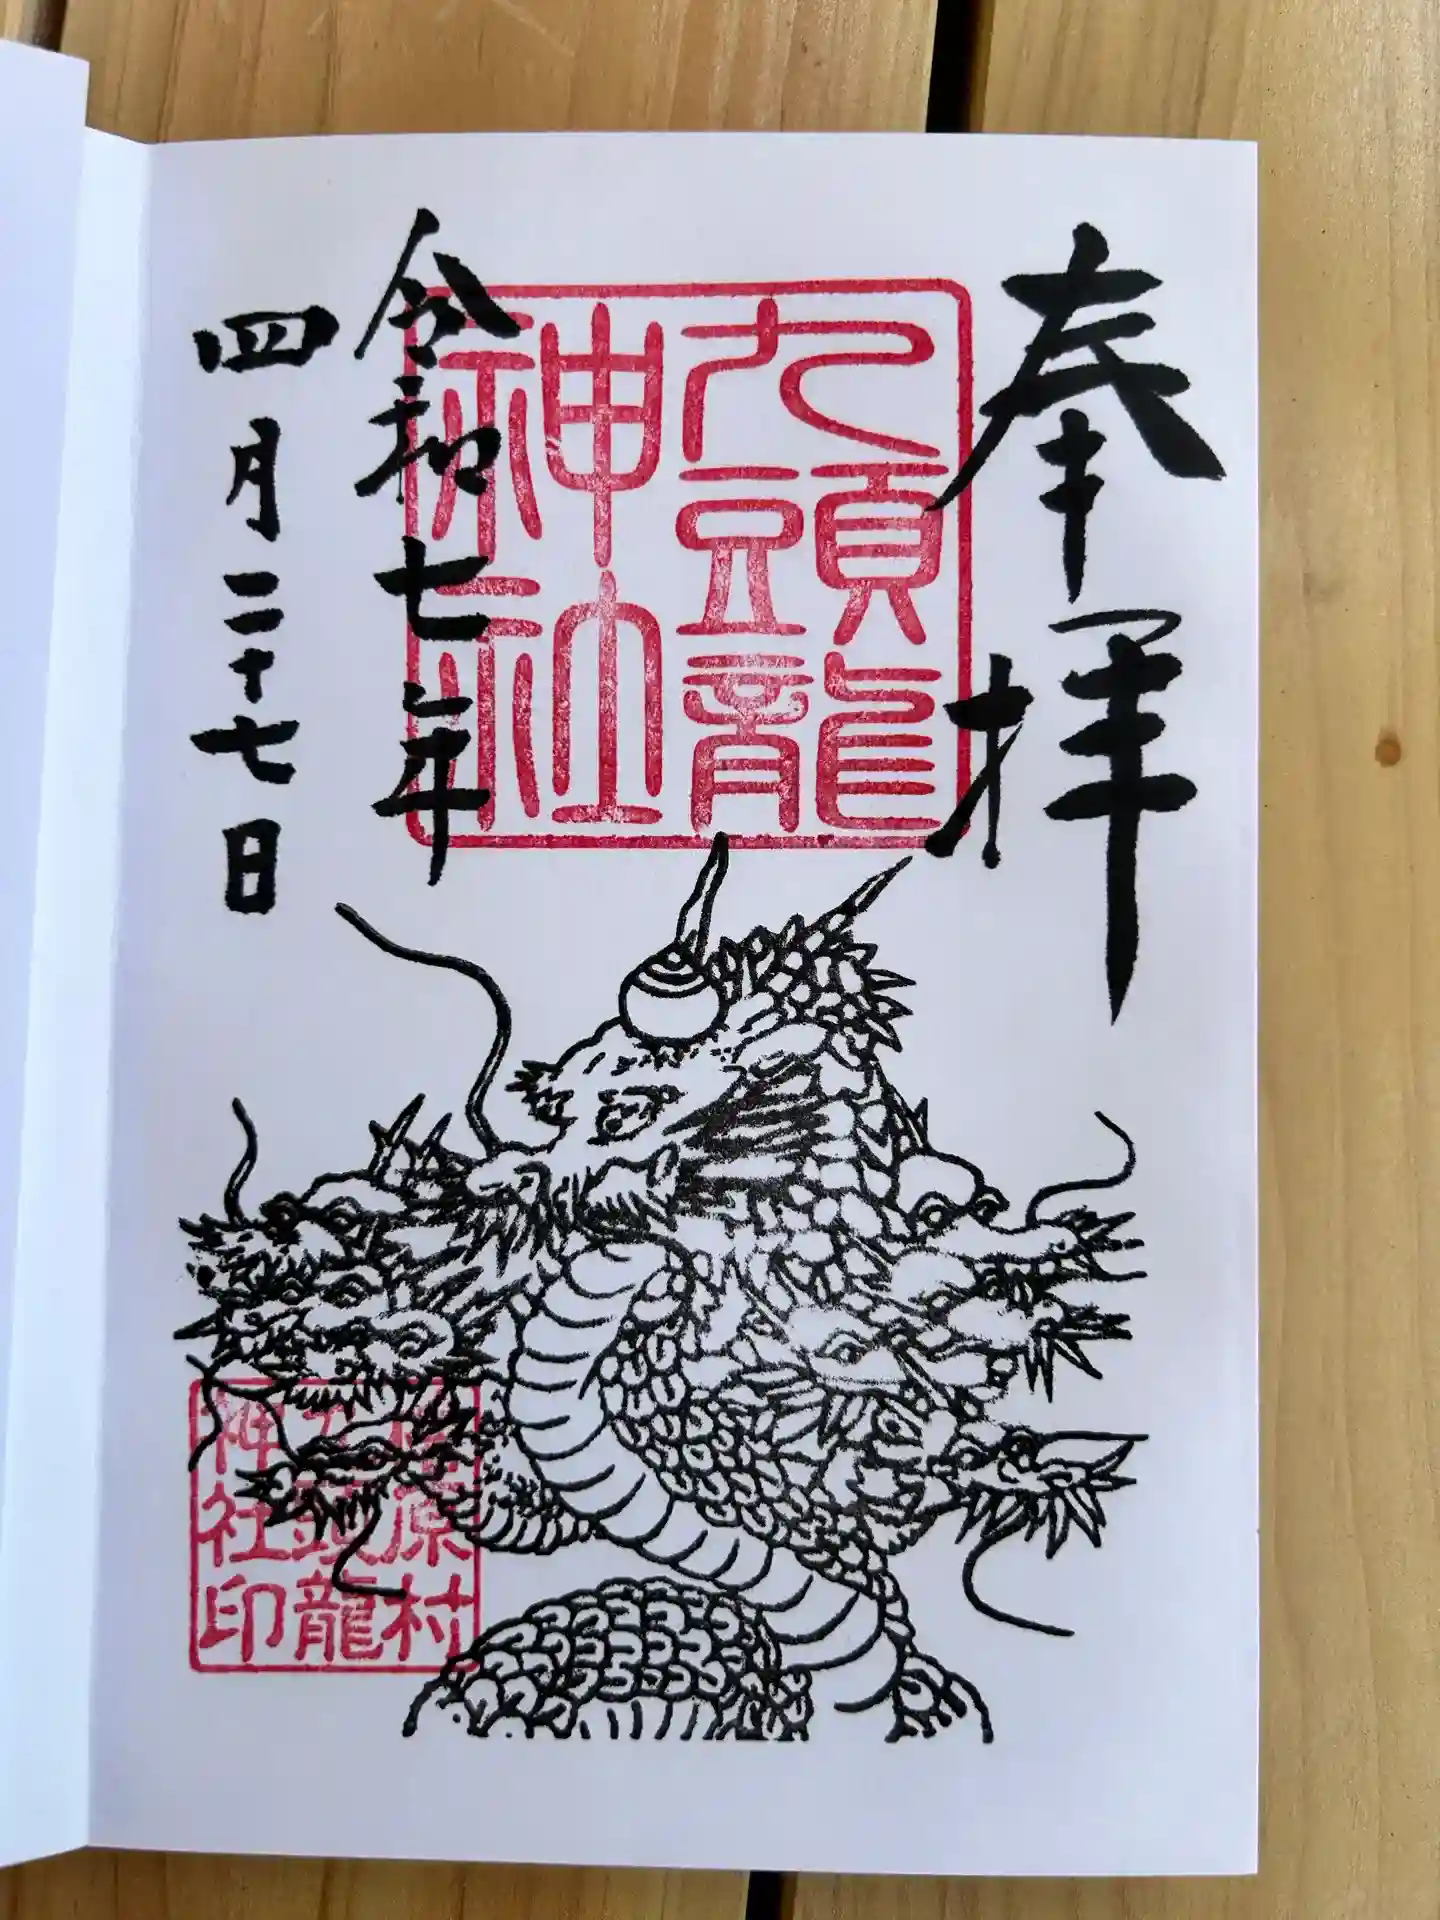 奉拝
九頭龍
神社
令和七年
四月二十七日
檜原村
九頭龍
神社印